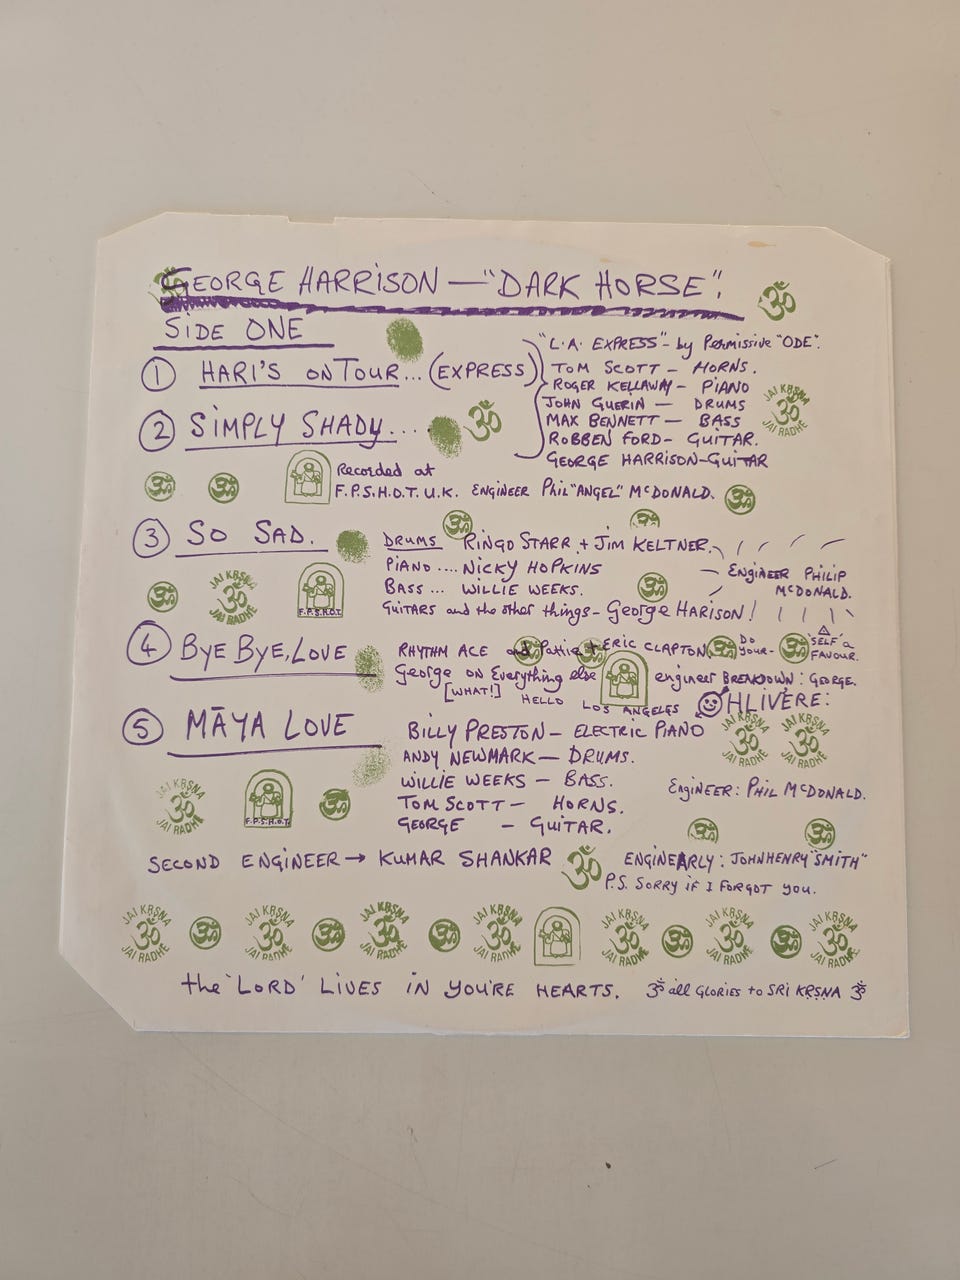 GEORGE HARRISON — "DARK HORSE".
SIDE ONE
① HARI'S ON TOUR... (EXPRESS)
"L.A. EXPRESS" - by Permissive "ODE".
TOM SCOTT — HORNS.
ROGER KELLAWAY — PIANO
JOHN GUERIN — DRUMS
MAX BENNETT — BASS
ROBBEN FORD — GUITAR.
GEORGE HARRISON — GUITAR
② SIMPLY SHADY...
JAI KRSNA ॐ JAI RADHE
Recorded at
F.P.S.H.O.T. U.K. ENGINEER Phil "ANGEL" McDONALD.
③ SO SAD.
DRUMS RINGO STARR + JIM KELTNER.
PIANO .... NICKY HOPKINS
BASS ... WILLIE WEEKS.
GUITARS and the other things — George HARISON!
ENGINEER PHILIP
McDONALD.
JAI KRSNA ॐ JAI RADHE
F.P.S.H.O.T.
④ BYE BYE, LOVE
RHYTHM ACE and Pattie + ERIC CLAPTON
DO YOUR- 'SELF' a FAVOUR.
George on Everything else engineer BREAKDOWN: GEORGE.
[WHAT!] HELLO LOS ANGELES OHLIVERE:
⑤ MĀYA LOVE
BILLY PRESTON — ELECTRIC PIANO
ANDY NEWMARK — DRUMS.
WILLIE WEEKS — BASS.
TOM SCOTT — HORNS.
GEORGE — GUITAR.
JAI KRSNA ॐ JAI RADHE
JAI KRSNA ॐ JAI RADHE
ENGINEER: PHIL McDONALD.
JAI KRSNA ॐ JAI RADHE
F.P.S.H.O.T.
SECOND ENGINEER → KUMAR SHANKAR ॐ ENGINEARLY: JOHN HENRY "SMITH"
P.S. SORRY if I FORGOT YOU.
JAI KRSNA ॐ JAI RADHE ॐ JAI KRSNA ॐ JAI RADHE ॐ JAI KRSNA ॐ JAI RADHE ॐ JAI KRSNA ॐ JAI RADHE JAI KRSNA ॐ JAI RADHE ॐ JAI KRSNA ॐ JAI RADHE ॐ JAI KRSNA ॐ JAI RADHE
the 'LORD' LIVES IN YOU'RE HEARTS. ॐ all GLORIES to SRI KRṢNA ॐ